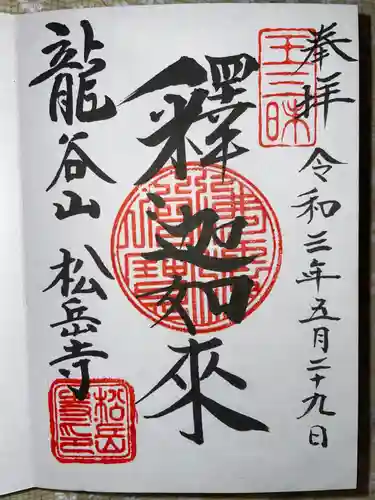 奉拝
令和三年五月二十九日
王三昧
釋迦如來
龍谷山 松岳寺